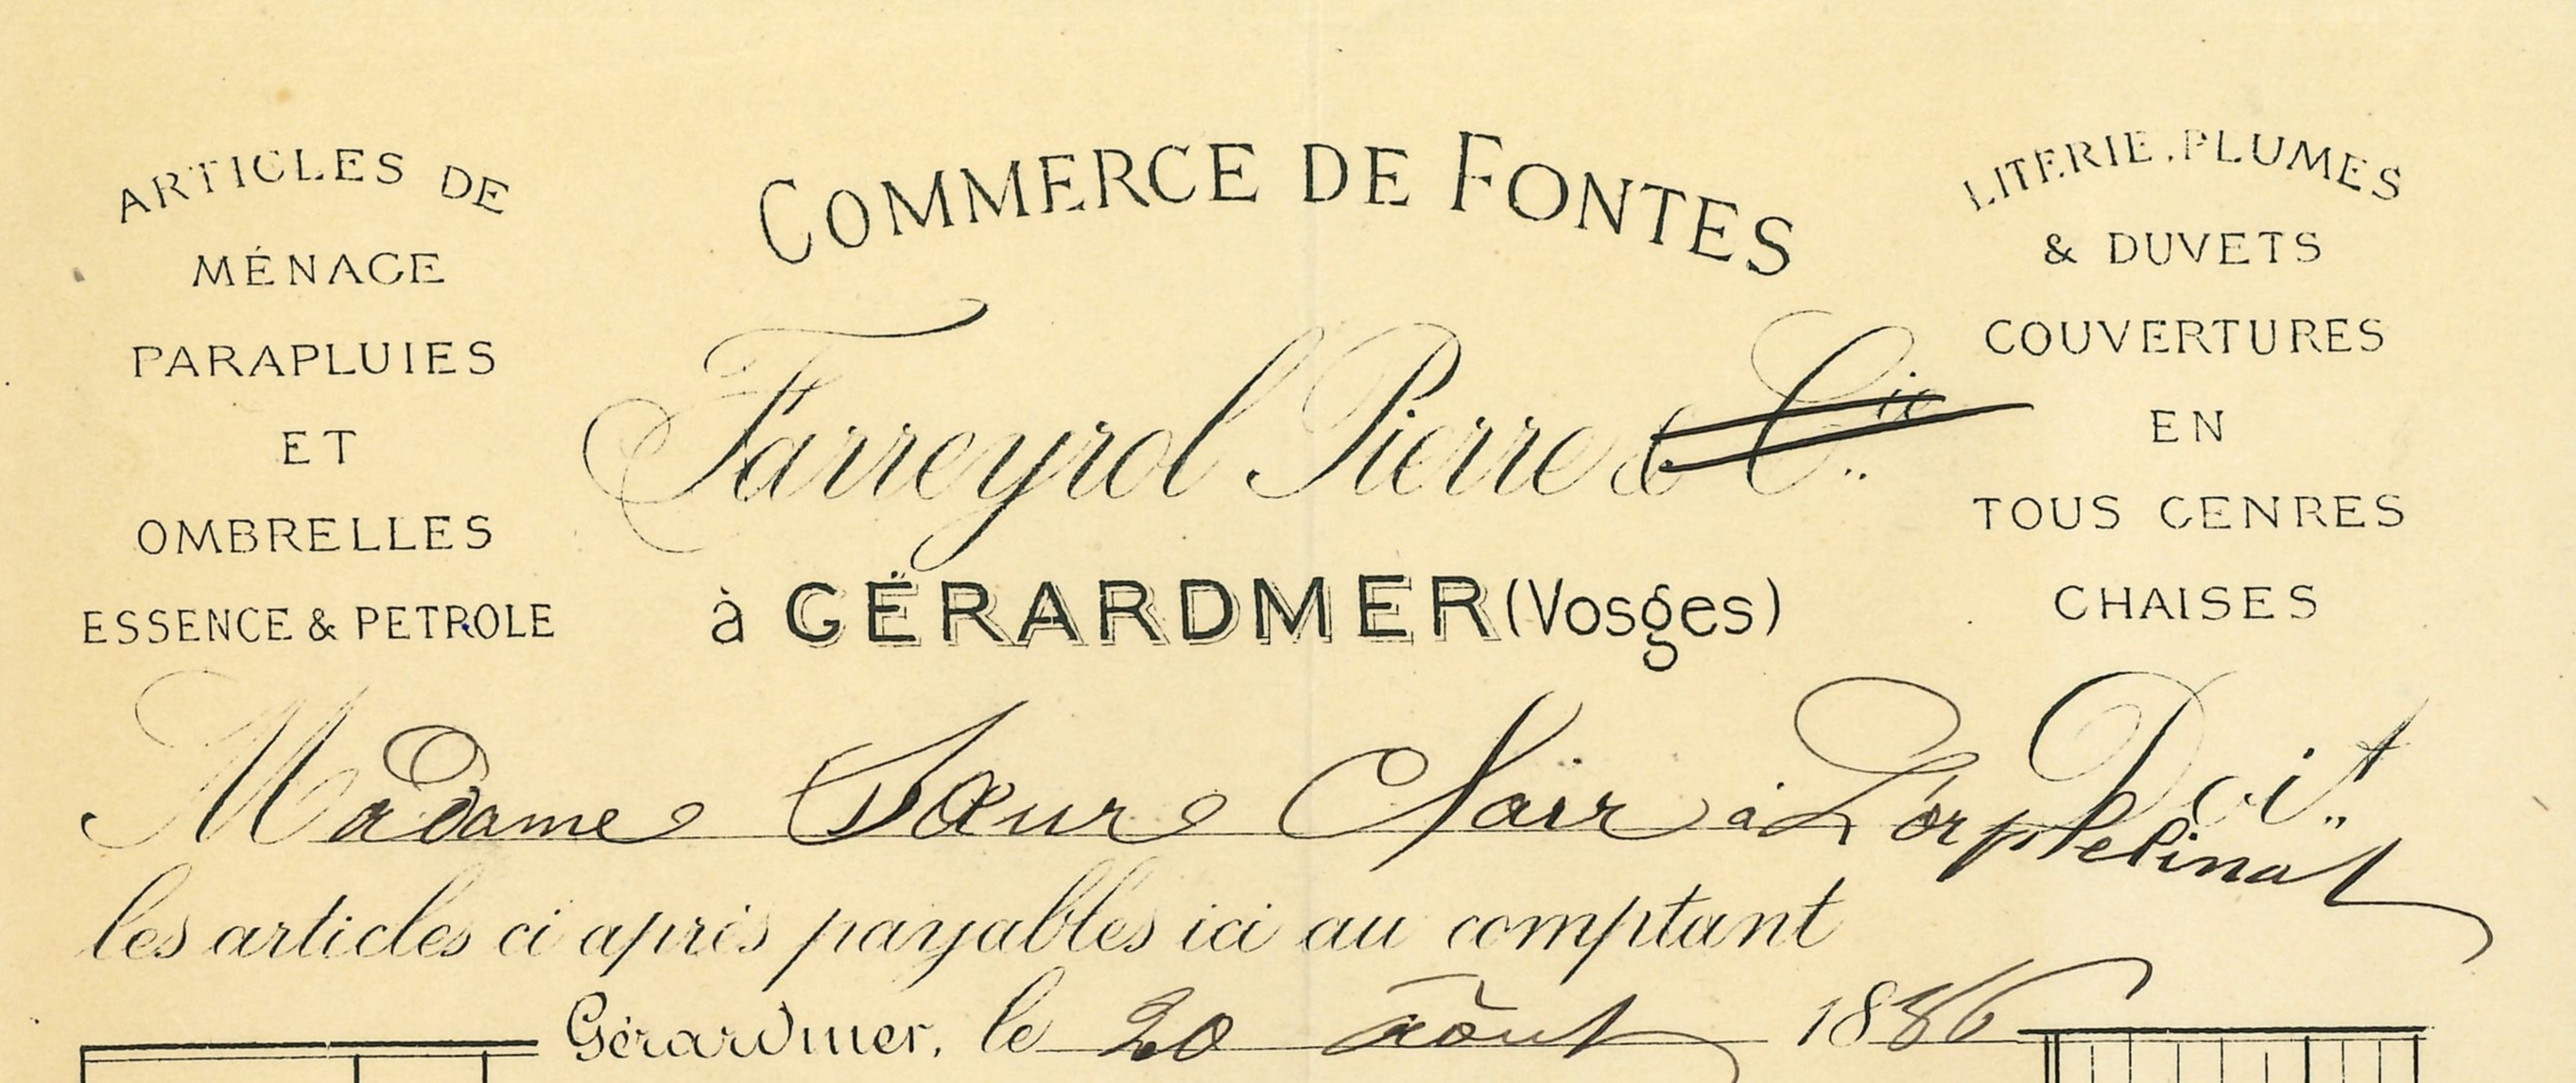 ARTICLES DE
MÉNAGE
PARAPLUIES
ET
OMBRELLES
ESSENCE & PETROLE
COMMERCE DE FONTES
Farreyrol Pierre & Cie
à GÉRARDMER (Vosges)
LITERIE, PLUMES
& DUVETS
COUVERTURES
EN
TOUS GENRES
CHAISES
Madame Sœur à L'orphelinat Doit
les articles ci après payables ici au comptant
Gérardmer, le 20 août 1886